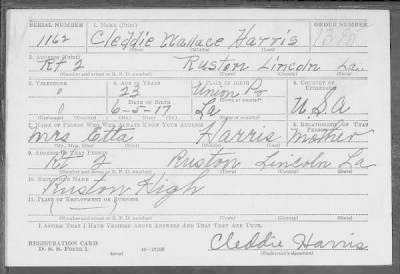 SERIAL NUMBER 1. NAME (Print) ORDER NUMBER
1162 Cleddie Wallace Harris
(First) (Middle) (Last)
2. ADDRESS (Print)
RT 2 Ruston Lincoln La.
(Number and street or R. F. D. number) (Town) (County) (State)
3. TELEPHONE 4. AGE IN YEARS 5. PLACE OF BIRTH 6. COUNTRY OF CITIZENSHIP
0 23 Union Pr
DATE OF BIRTH (Town or county)
0 6-5-17 La U.S.A
7. NAME OF PERSON WHO WILL ALWAYS KNOW YOUR ADDRESS 8. RELATIONSHIP OF THAT PERSON
Mrs Etta Harris Mother
9. ADDRESS OF THAT PERSON
RT 2 Ruston Lincoln La
(Number and street or R. F. D. number) (Town) (County) (State)
10. EMPLOYER'S NAME
Ruston High
11. PLACE OF EMPLOYMENT OR BUSINESS
(Number and street or R. F. D. number) (Town) (County) (State)
I AFFIRM THAT I HAVE VERIFIED ABOVE ANSWERS AND THAT THEY ARE TRUE.
REGISTRATION CARD
D. S. S. Form 1 (over) Cleddie Harris
(Registrant's signature)